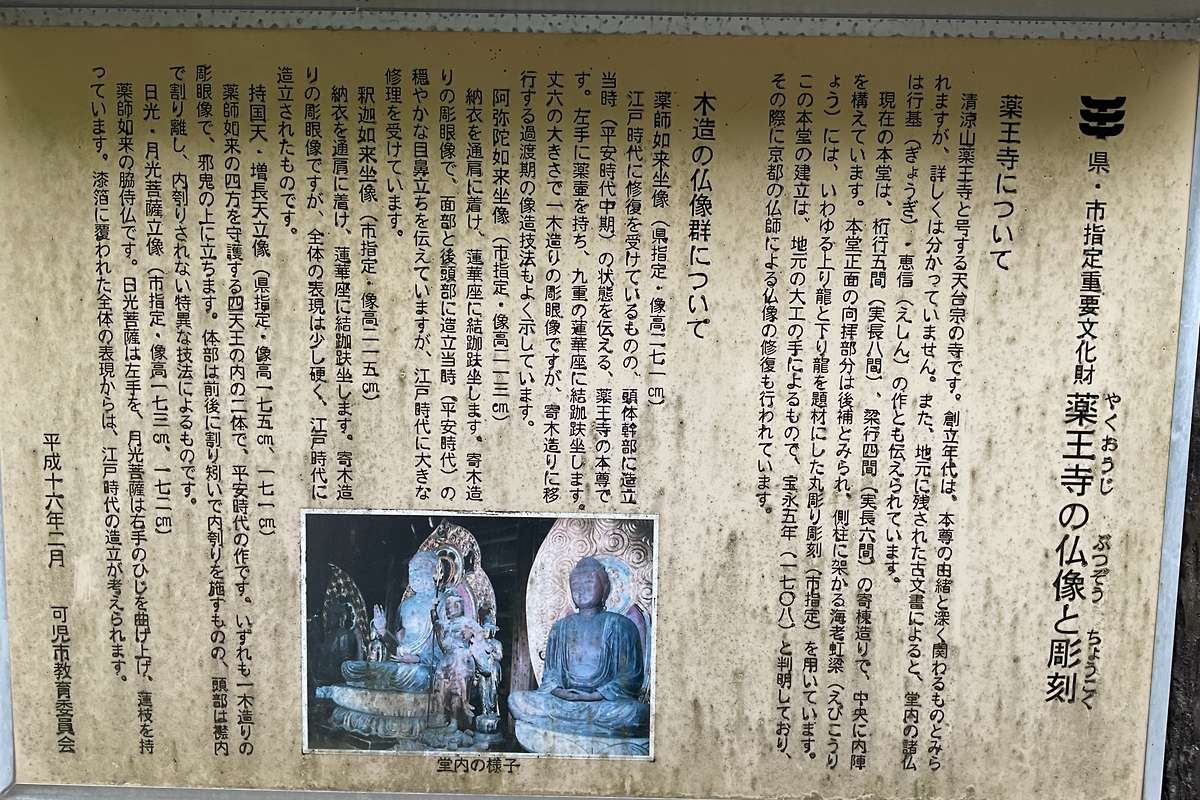 県・市指定重要文化財 薬王寺の仏像と彫刻
やくおうじ ぶつぞう ちょうこく
薬王寺について
清涼山薬王寺と号する天台宗の寺です。創立年代は、本尊の由緒と深く関わるものとみら
れますが、詳しくは分かっていません。また、地元に残された古文書によると、堂内の諸仏
は行基（ぎょうぎ）・恵信（えしん）の作とも伝えられています。
現在の本堂は、桁行五間（実長八間）、梁行四間（実長六間）の寄棟造りで、中央に内陣
を構えています。本堂正面の向拝部分は後補とみられ、側柱に架かる海老虹梁（えびこうり
ょう）には、いわゆる上り龍と下り龍を題材にした丸彫り彫刻（市指定）を用いています。
この本堂の建立は、地元の大工の手によるもので、宝永五年（一七〇八）と判明しており、
その際に京都の仏師による仏像の修復も行われています。
木造の仏像群について
薬師如来坐像（県指定・像高二七一㎝）
江戸時代に修復を受けているものの、頭体幹部に造立
当時（平安時代中期）の状態を伝える、薬王寺の本尊で
す。左手に薬壷を持ち、九重の蓮華座に結跏趺坐します。
丈六の大きさで一木造りの彫眼像ですが、寄木造りに移
行する過渡期の像造技法もよく示しています。
阿弥陀如来坐像（市指定・像高二一三㎝）
納衣を通肩に着け、蓮華座に結跏趺坐します。寄木造
りの彫眼像で、面部と後頭部に造立当時（平安時代）の
穏やかな目鼻立ちを伝えていますが、江戸時代に大きな
修理を受けています。
釈迦如来坐像（市指定・像高二一五㎝）
納衣を通肩に着け、蓮華座に結跏趺坐します。寄木造
りの彫眼像ですが、全体の表現は少し硬く、江戸時代に
造立されたものです。
持国天・増長天立像（県指定・像高一七五㎝、一七一㎝）
薬師如来の四方を守護する四天王の内の二体で、平安時代の作です。いずれも一木造りの
彫眼像で、邪鬼の上に立ちます。体部は前後に割り矧いで内刳りを施すものの、頭部は襟内
で割り離し、内刳りされない特異な技法によるものです。
日光・月光菩薩立像（市指定・像高一七三㎝、一七二㎝）
薬師如来の脇侍仏です。日光菩薩は左手を、月光菩薩は右手のひじを曲げ上げ、蓮枝を持
っています。漆箔に覆われた全体の表現からは、江戸時代の造立が考えられます。
平成十六年二月 可児市教育委員会
堂内の様子